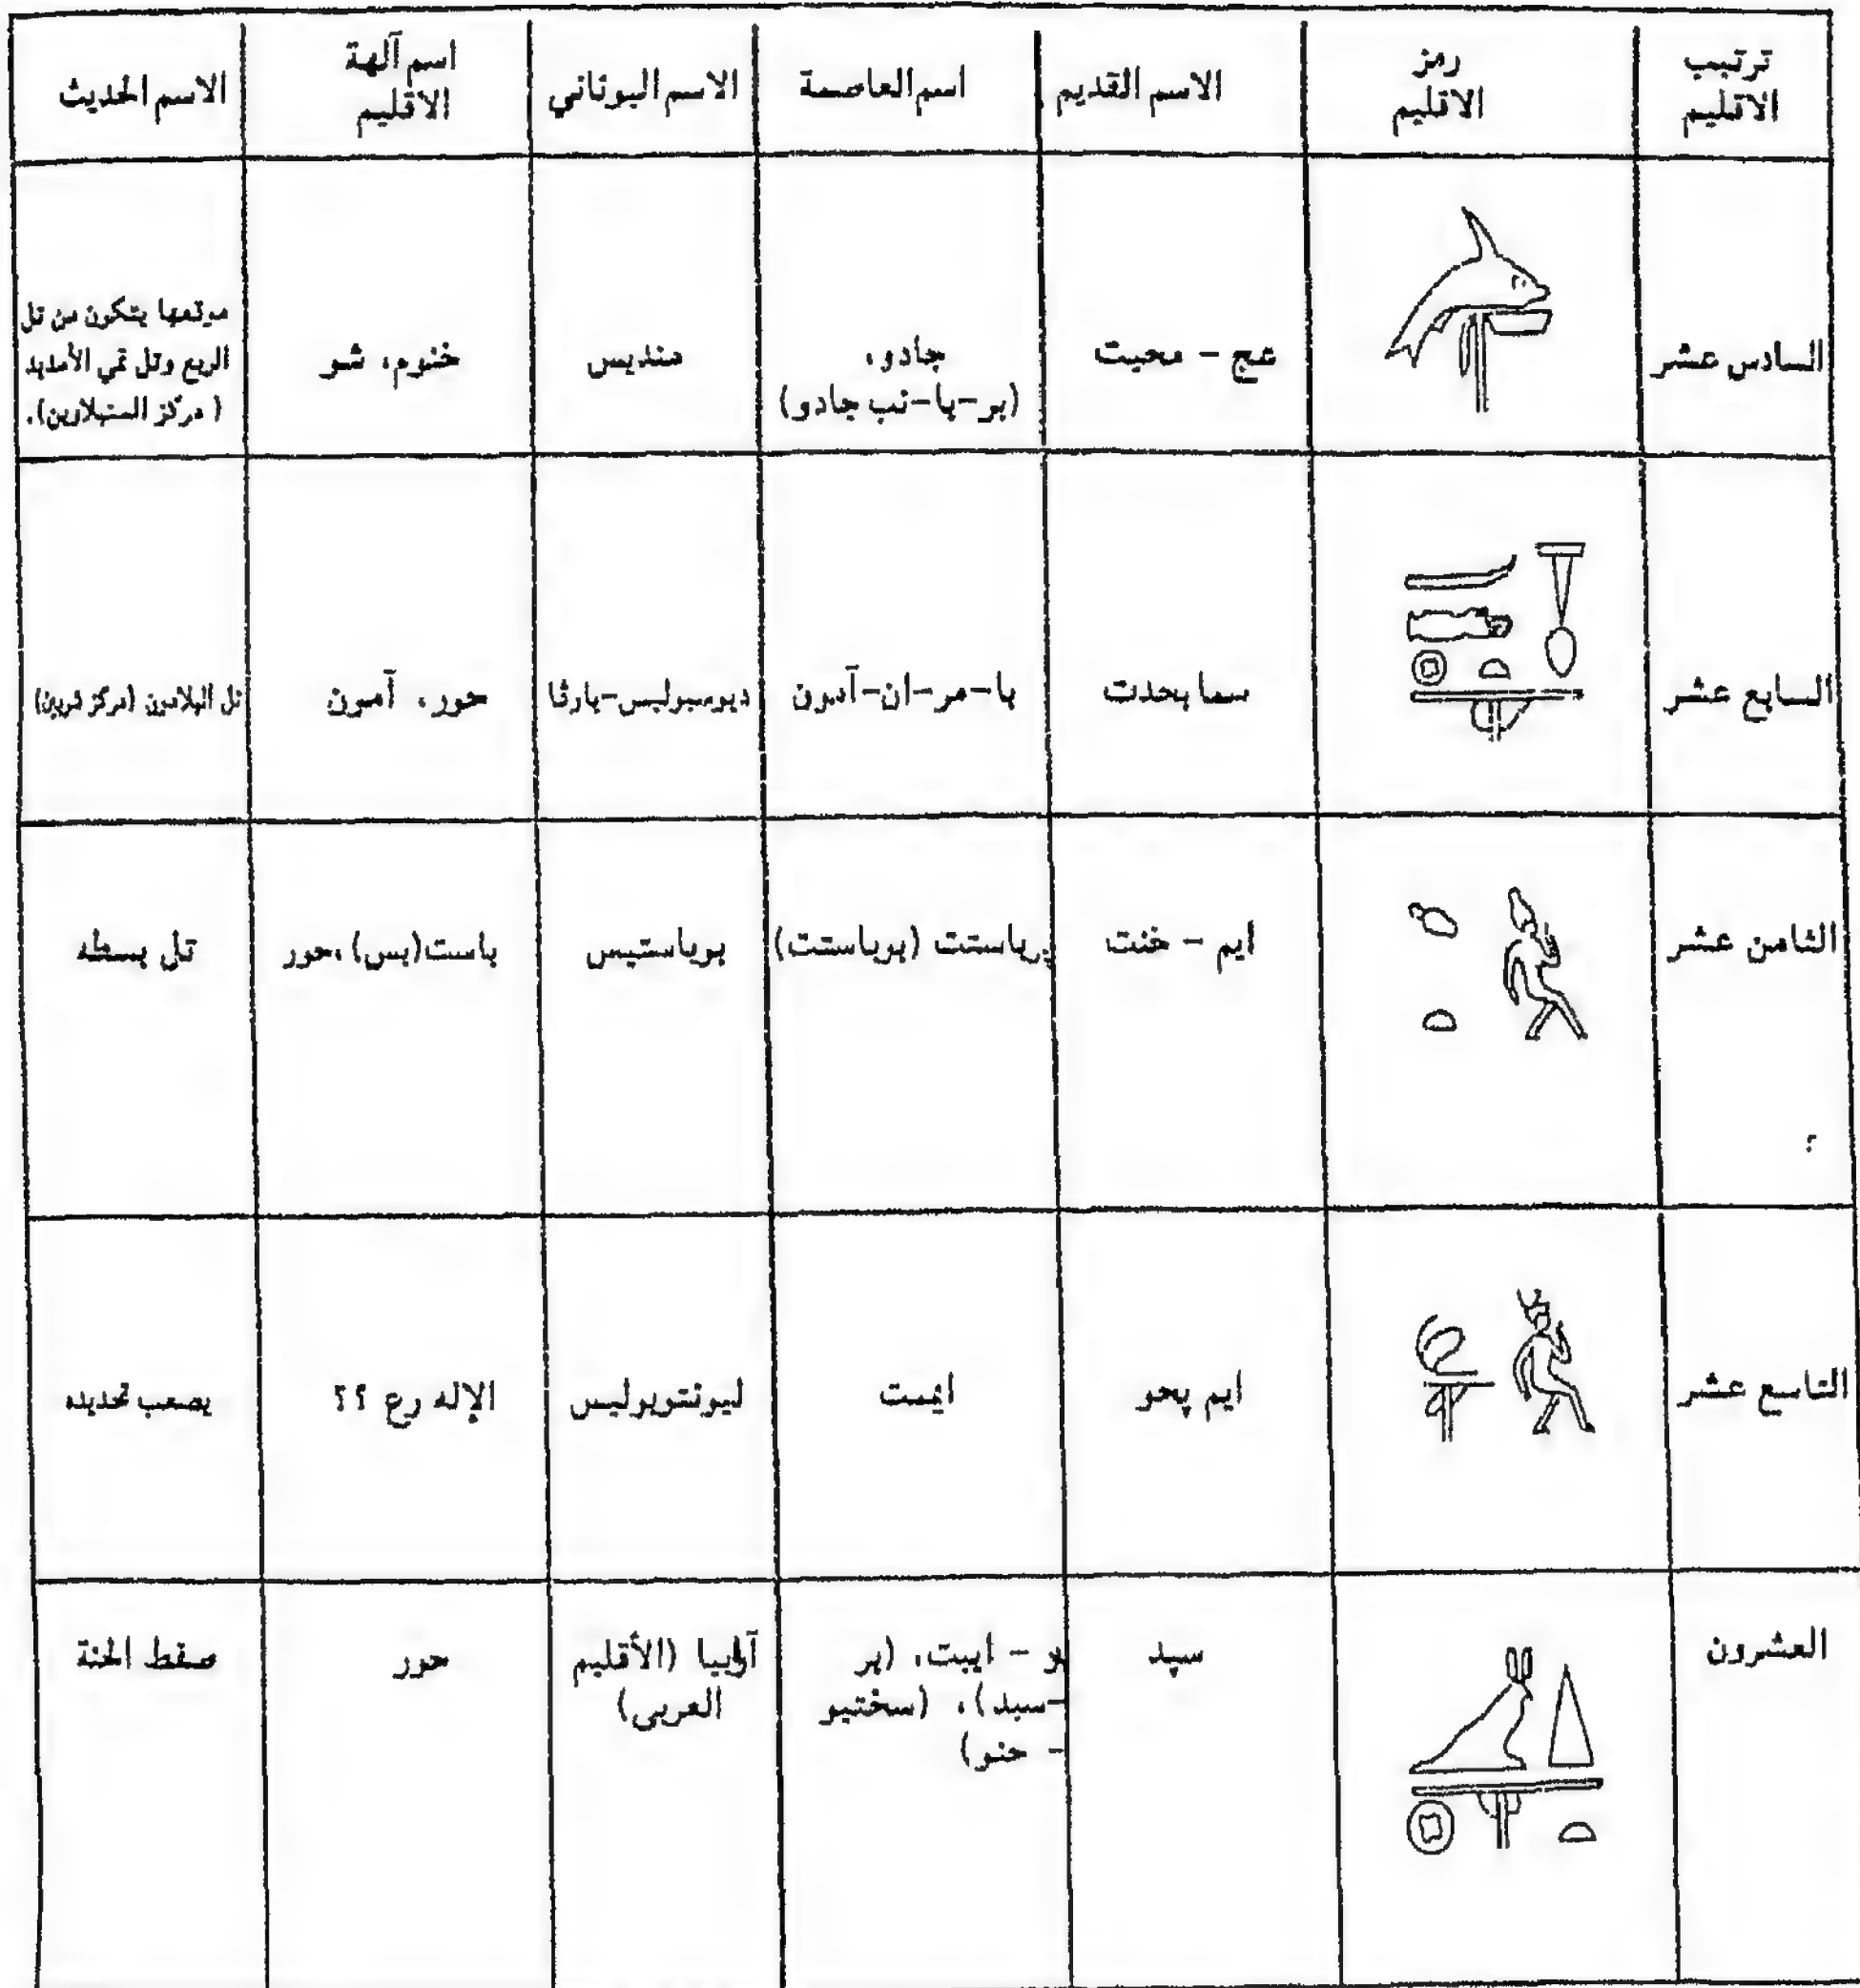 ترتيب الاقليم
رمز الاقليم
الاسم القديم
اسم العاصمة
الاسم اليوناني
اسم آلهة الاقليم
الاسم الحديث
السادس عشر
عج - محيت
جادو،
(بر-با-نب جادو)
منديس
خنوم، شو
موقعها يتكون من تل
الربع وتل تمي الأمديد
(مركز السنبلاوين).
السابع عشر
سما بحدت
با-مر-ان-آمون
ديوسبوليس-بارفا
حور، آمون
تل البلامون (مركز شربين)
الثامن عشر
ايم - خنت
برباستت (بوباستت)
بوباستيس
باست (بس)، حور
تل بسطه
؟
التاسع عشر
ايم پحو
ايمت
ليونتوبوليس
الإله رع ؟؟
يصعب تحديده
العشرون
سپد
- ايبت، (بر
-سبد)، (سختيو
- حنو)
(الأقليم
العربى)
حور
صفط الحنة